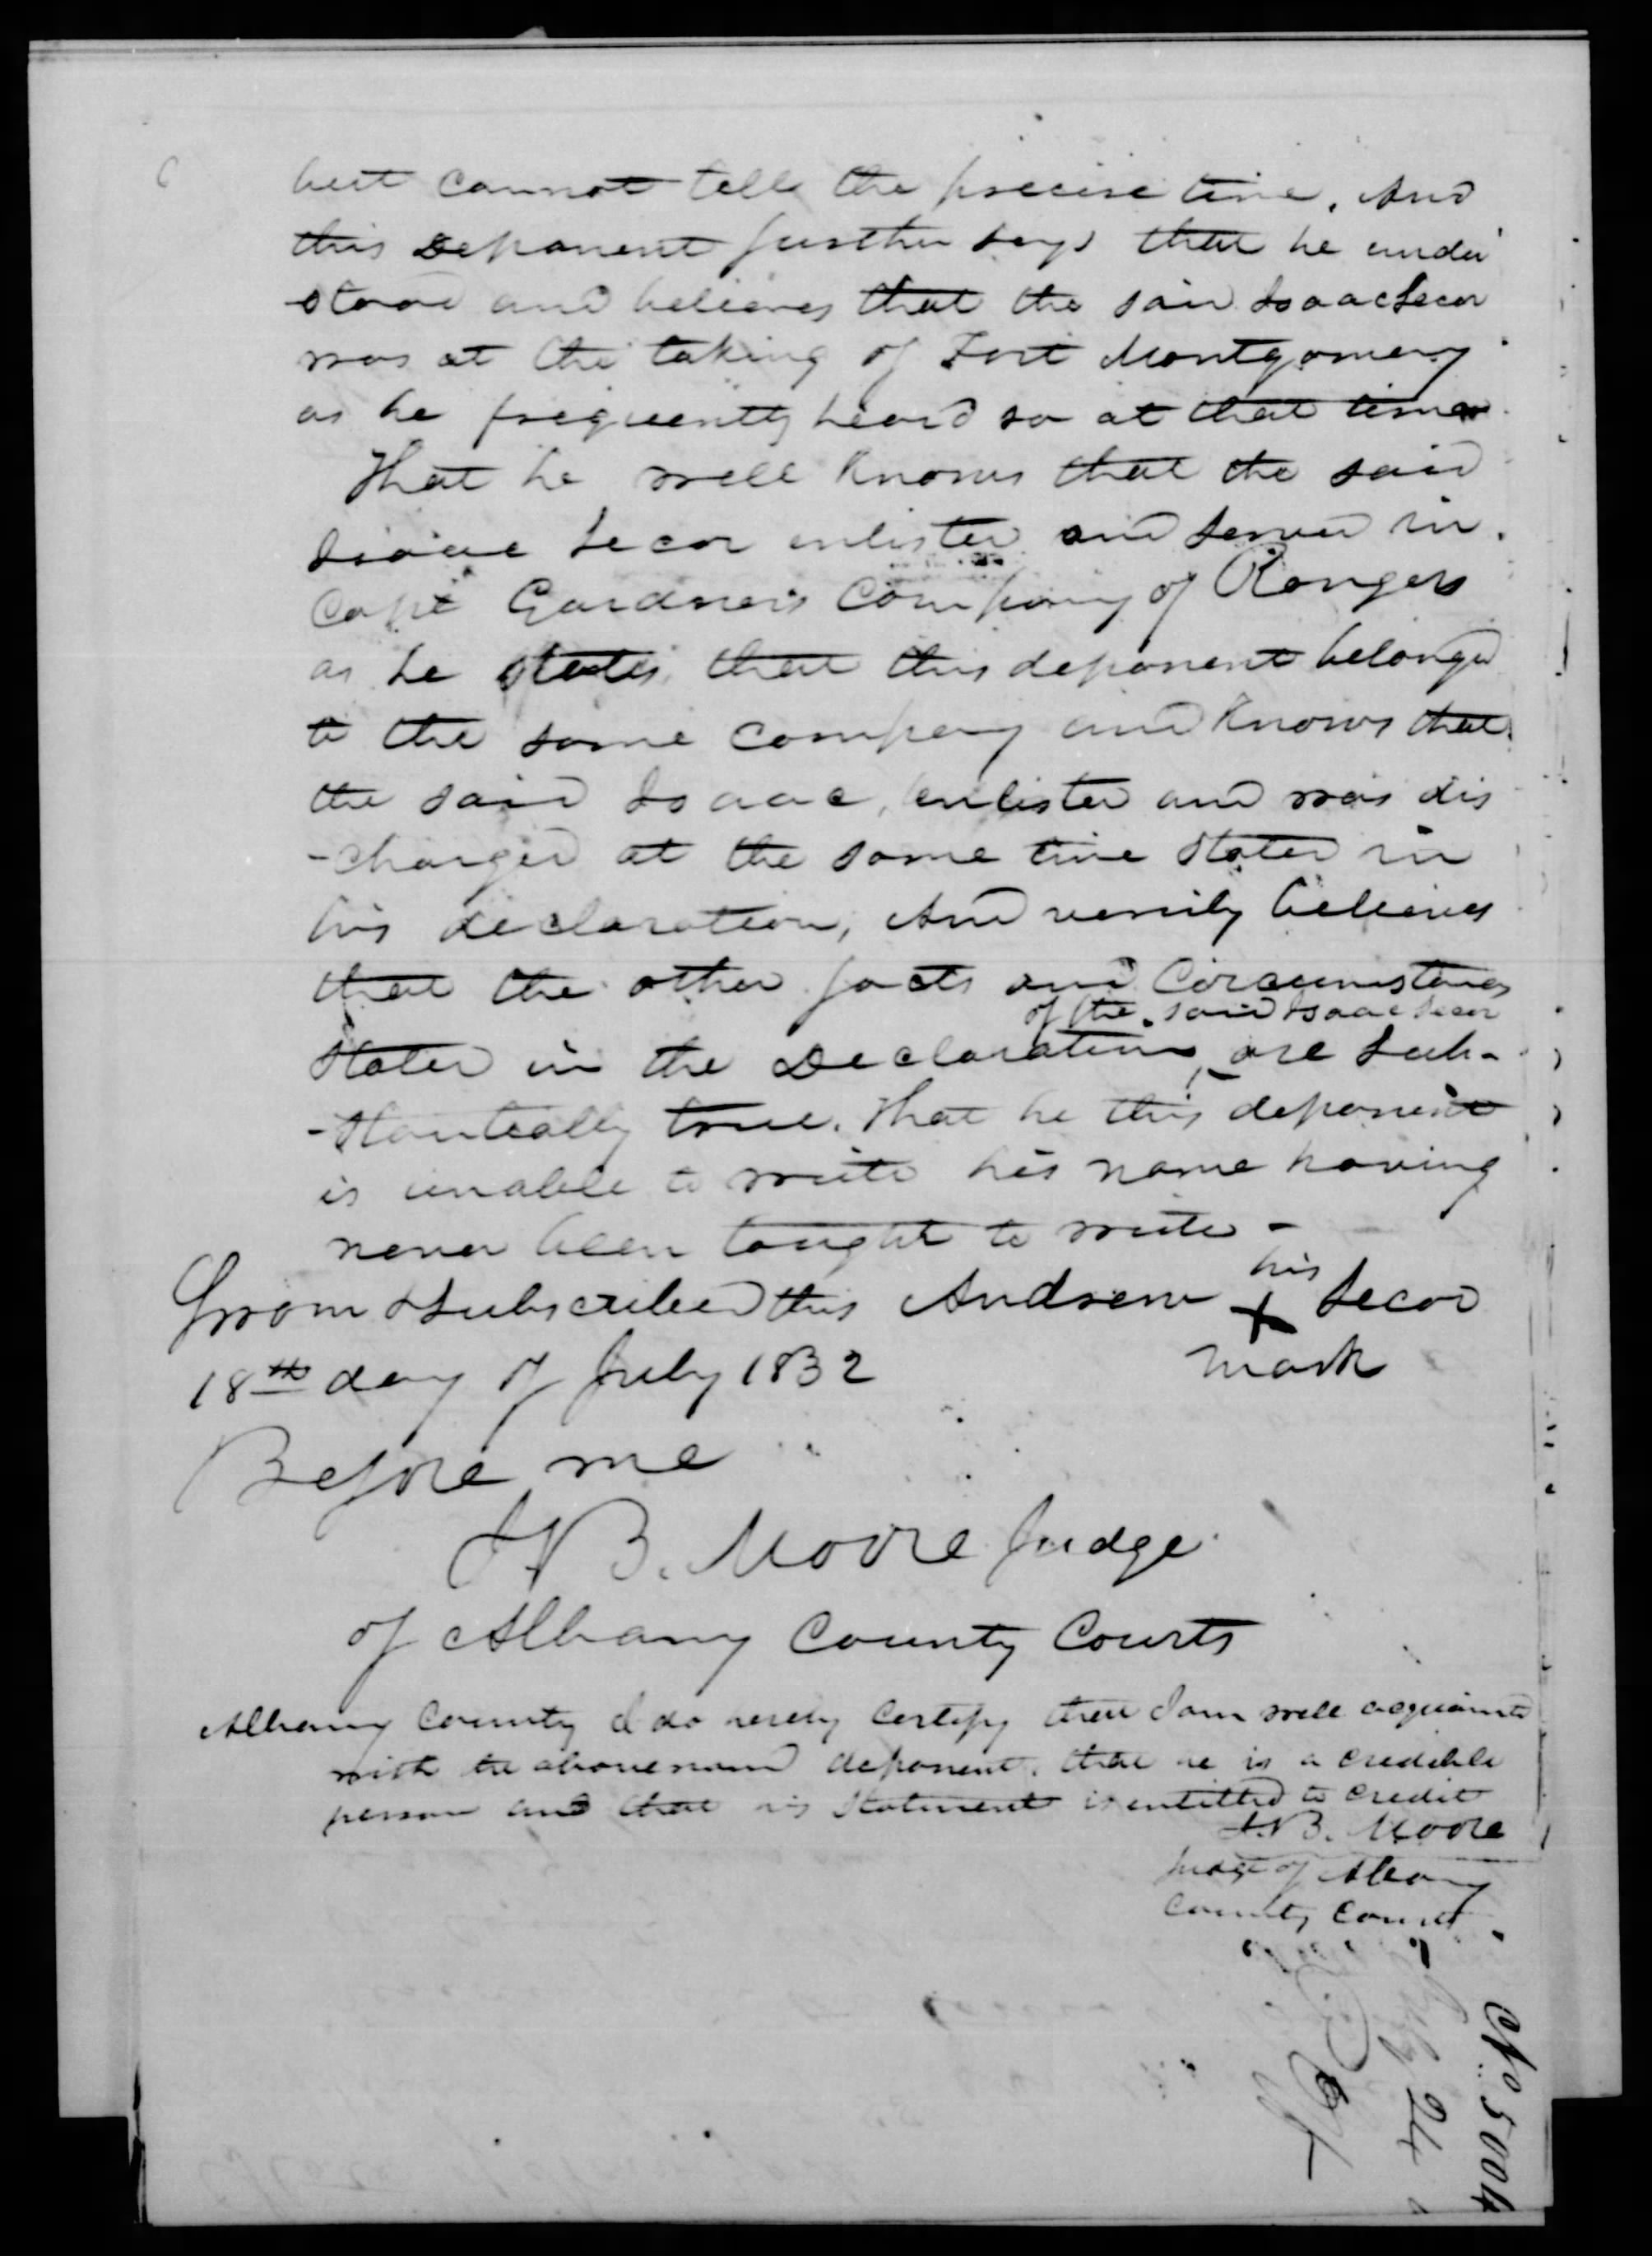 but cannot tell the precise time. And
this Deponent further says that he under
stood and believes that the said Isaac Secor
was at the taking of Fort Montgomery
as he frequently heard so at that time
That he well knows that the said
Isaac Secor enlisted and served in
Capt Gardner's Company of Rangers
as he states, that this deponent belonged
to the same company and knows that
the said Isaac, enlisted and was dis
-charged at the same time stated in
his declaration, And verily believes
that the other facts and Circumstances
of the said Isaac Secor
stated in the Declaration ‸ are sub-
-stantially true. That he this deponent
is unable to write his name having
never been taught to write -
Sworn & Subscribed this Andrew his X Secor
18th day of July 1832 mark
Before me
J B. Moore Judge
of Albany County Courts
Albany County I do hereby Certify that I am well acquainted
with the above named deponent, that he is a credible
person and that his Statement is entitled to credit
J.B. Moore
Judge of Albany
County Courts
July 24
No 5004